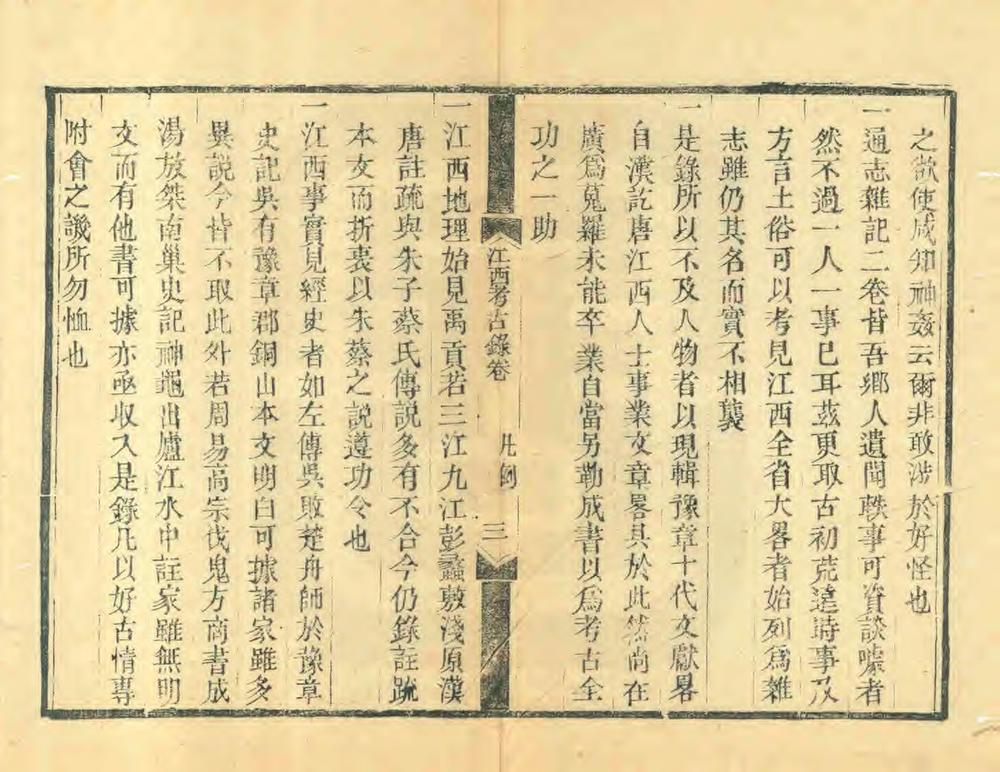 之欲使咸知神姦云爾非敢涉於好怪也
一通志雜記二卷皆吾鄉人遺聞軼事可資談噱者
然不過一人一事已耳茲更取古初荒遠時事及
方言土俗可以考見江西全省大畧者始列爲雜
志雖仍其名而實不相襲
一是錄所以不及人物者以現輯豫章十代文獻畧
自漢訖唐江西人士事業文章畧具於此然尚在
廣爲蒐羅未能卒業自當另勒成書以爲考古全
功之一助
江西考古錄卷 凡例 三
一江西地理始見禹貢若三江九江彭蠡敷淺原漢
唐註疏與朱子蔡氏傳說多有不合今仍錄註疏
本文而折衷以朱蔡之說遵功令也
一江西事實見經史者如左傳吳敗楚舟師於豫章
史記吳有豫章郡銅山本文明白可據諸家雖多
異說今皆不取此外若周易高宗伐鬼方商書成
湯放桀南巢史記神龜出廬江水中註家雖無明
文而有他書可據亦亟収入是錄凡以好古情專
附會之譏所勿恤也